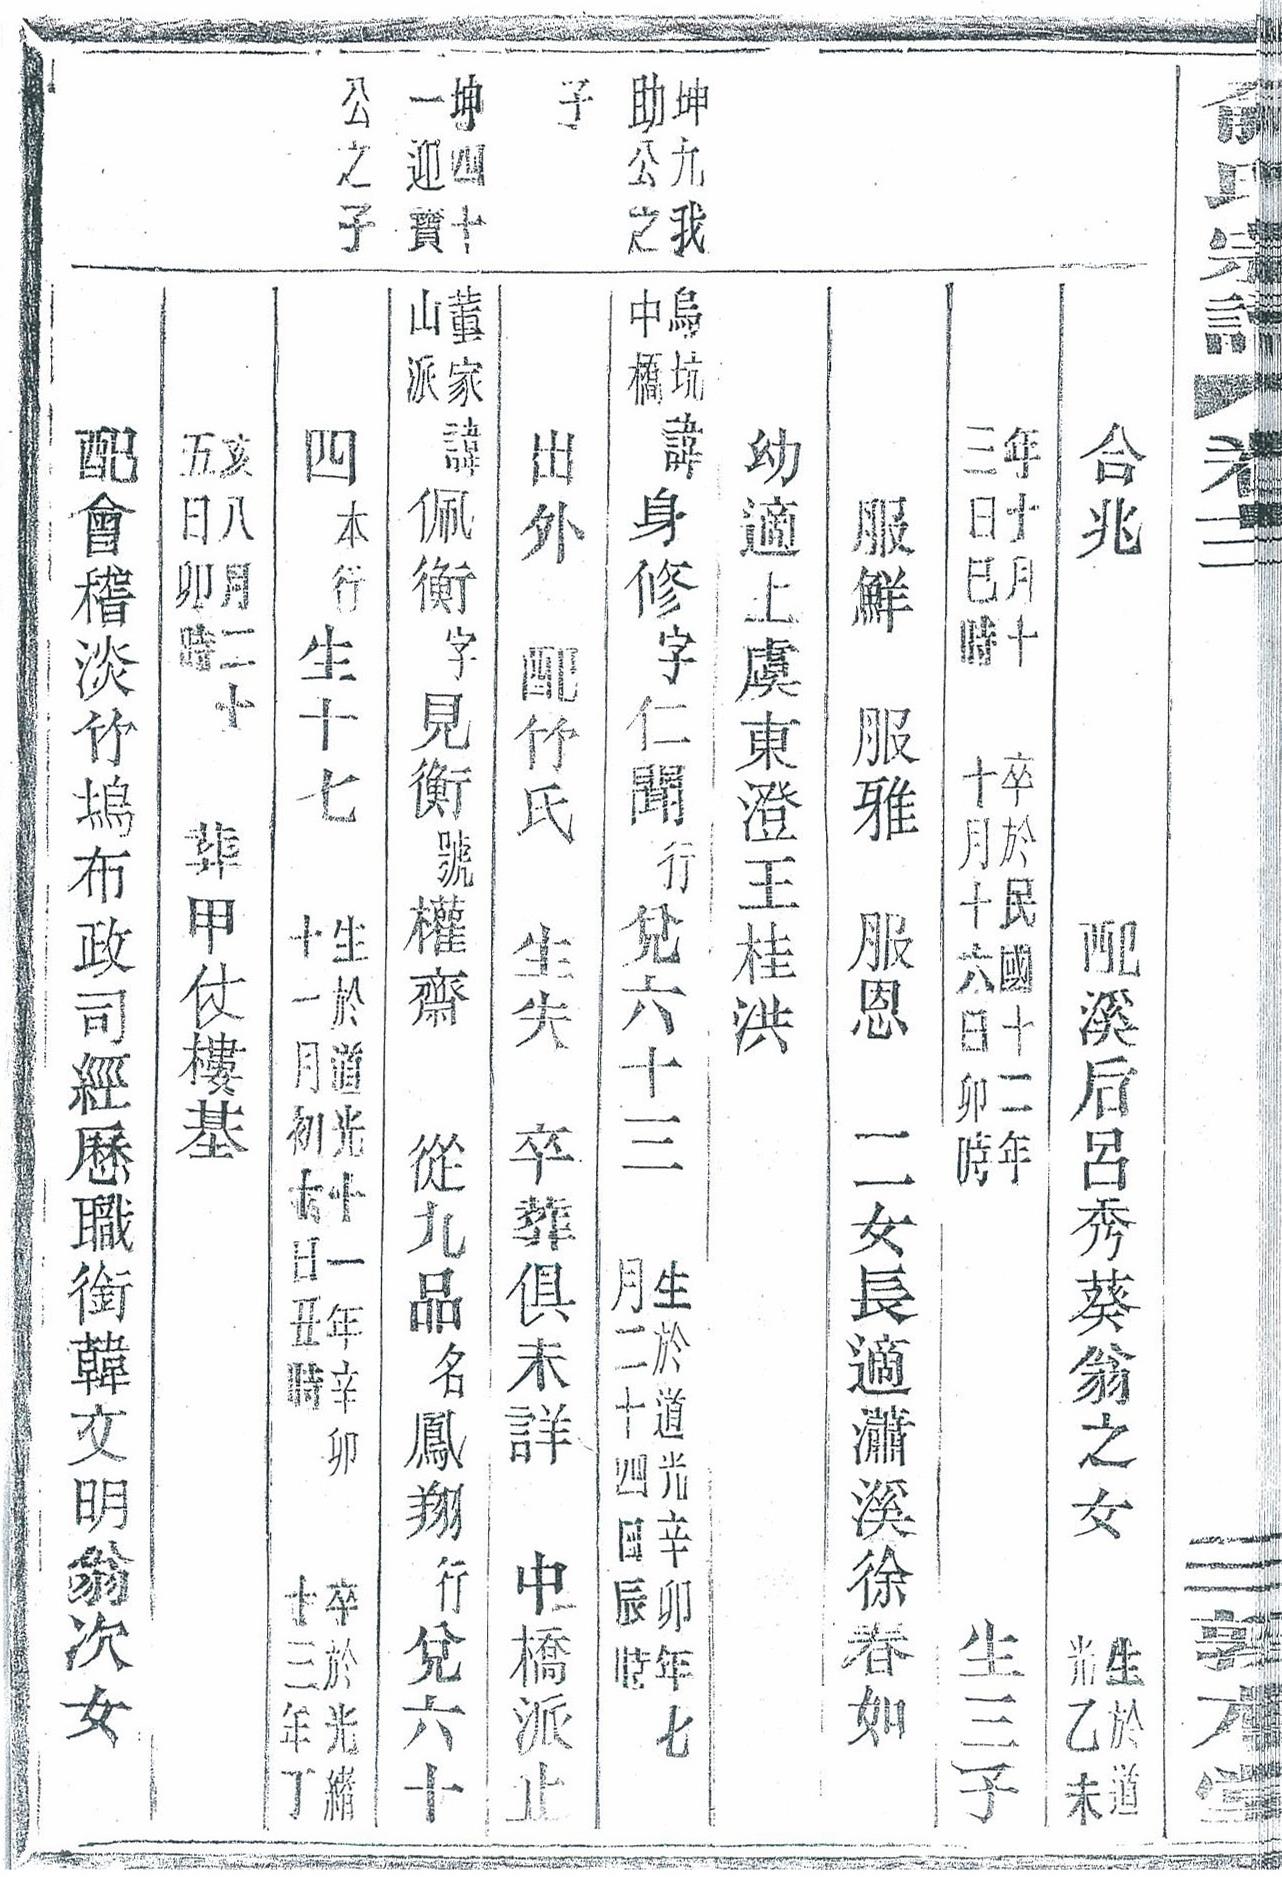 俞氏宗譜 卷二 三 敦本堂
合兆 配溪后呂秀葵翁之女 生於道光乙未
年十月十三日巳時 卒於民國十二年十月十六日卯時 生三子
服鮮 服雅 服恩 二女長適瀟溪徐春如
幼適上虞東澄王桂洪
坤九我助公之
烏坑中橋 諱身修字仁聞行兌六十三 生於道光辛卯年七月二十四日辰時
子
出外 配竹氏 生失 卒葬俱未詳 中橋派止
坤四十一迎寶
董家山派 諱佩衡字見衡號權齋 從九品名鳳翔行兌六十
公之子
四本行生十七 生於道光十一年辛卯十一月初 日丑時 卒於光緒十三年丁
亥八月二十五日卯時 葬甲仗樓基
配會稽淡竹塢布政司經歷職銜韓文明翁次女